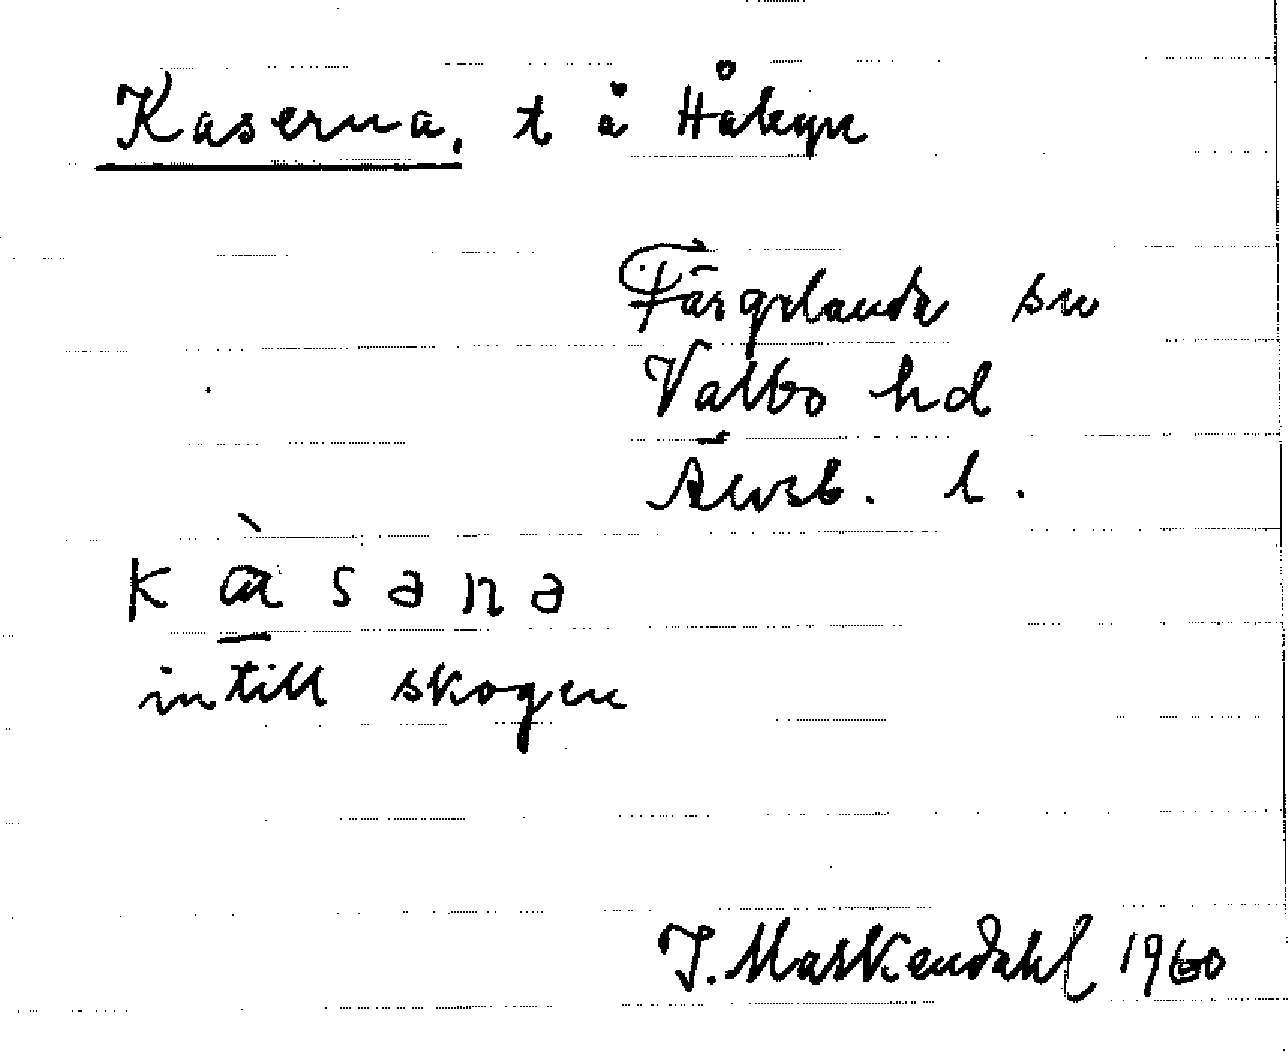 Kaserna, t å Håkyn
Färgelanda sn
Valbo hd
Älvsb. l.
k ɑ̀ s a n a
intill skogen
J. Markendahl 1960